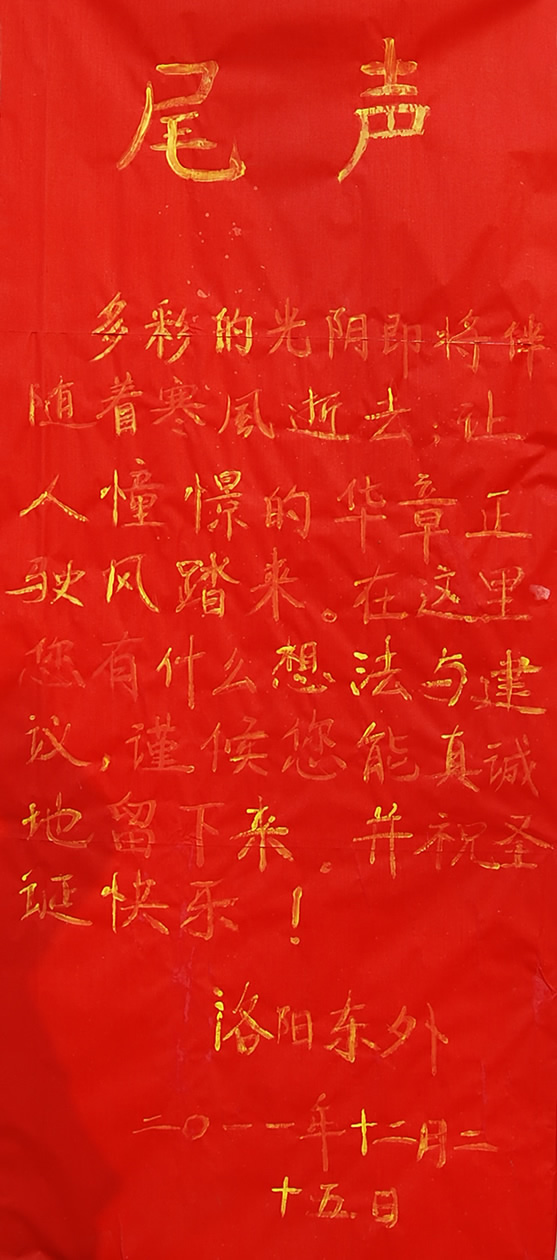 尾声
多彩的光阴即将伴
随着寒風逝去;让
人憧憬的华章正
驶风踏来。在这里
您有什么想法与建
议,谨候您能真诚
地留下来。并祝圣
诞快乐!
洛阳东外
二〇一一年十二月二
十五日